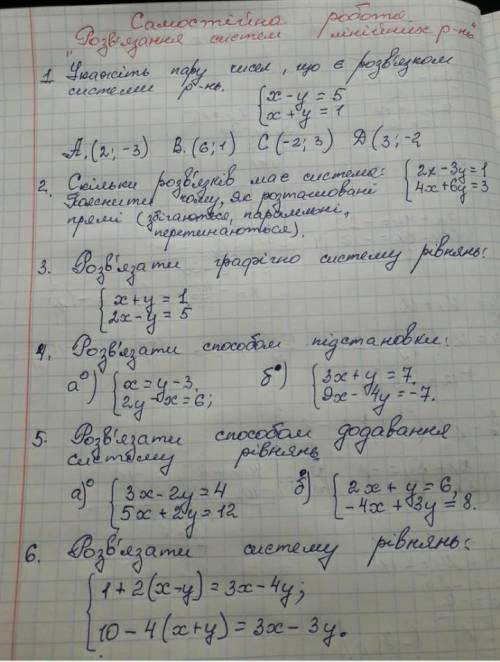 Самостійна робота
"Розв'язання систем лінійних р-нь"
1. Укажіть пару чисел, що є розв'язком
системи р-нь.
{ x - y = 5
x + y = 1
A.(2; -3) B.(6; 1) C(-2; 3) D(3; -2
2. Скільки розв'язків має система:
{ 2x - 3y = 1
4x + 6y = 3
Пояснити чому, як розташовані
прямі (збігаються, паралельні,
перетинаються).
3. Розв'язати графічно систему рівнянь:
{ x + y = 1
2x - y = 5
4. Розв'язати способом підстановки:
а°) { x = y - 3, б°) { 3x + y = 7,
2y - x = 6; 9x - 4y = -7.
5. Розв'язати способом додавання
систему рівнянь
а)° { 3x - 2y = 4 б)° { 2x + y = 6,
5x + 2y = 12 -4x + 3y = 8.
6. Розв'язати систему рівнянь:
{ 1 + 2(x - y) = 3x - 4y;
10 - 4(x + y) = 3x - 3y.